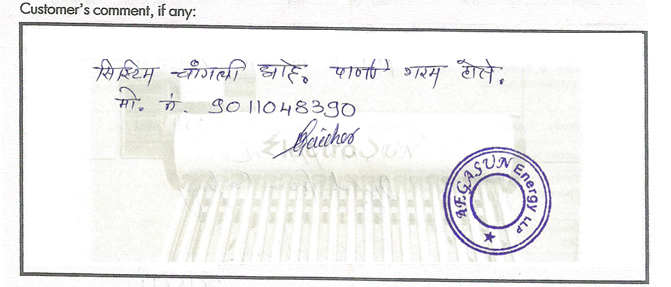 Customer's comment, if any:
सिस्टिम चांगली आहे. पाणी गरम होते.
मो. नं. 9011048390
ElectroSUN
AEGASUN Energy LLP